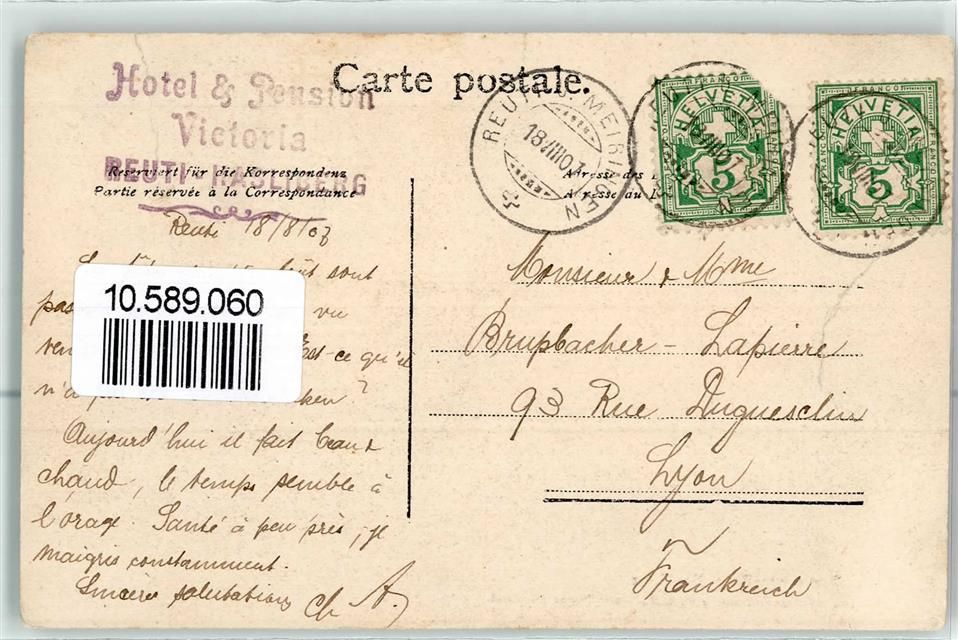 Carte postale.
Hotel & Pension
Victoria
REUTI
Reserviert für die Korrespondenz
Partie réservée à la Correspondance
Adresse des
Adresse du
REUTI MEIRINGEN
18 VIII 07
FRANCO
HELVETIA
5
FRANCO
HELVETIA
5
Reuti 18/8/07
sont
pas vu
10.589.060
Est-ce qu'il
n'a ken?
Aujourd'hui il fait beau &
chaud, le temps semble à
l'orage. Santé à peu près, je
maigris constamment.
Sincères salutations Ch A.
Monsieur & Mme
Brupbacher - Lapierre
93 Rue Duguesclin
Lyon
Frankreich